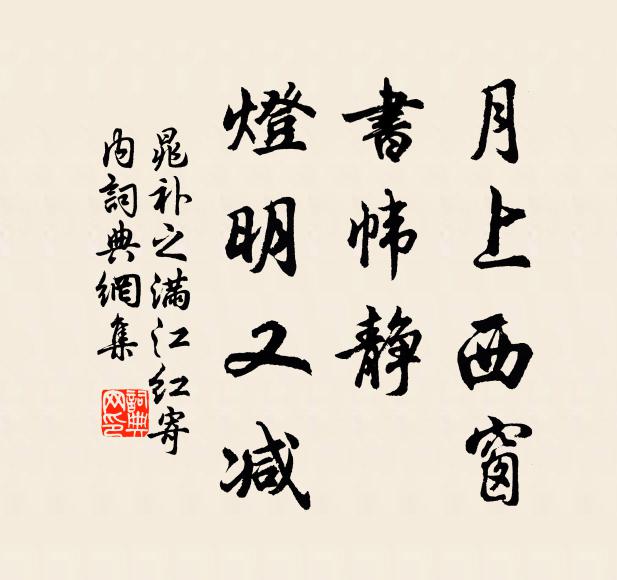 月上西窗
書帏静
燈明又减
晁补之满江红寄
内詞典網集
詞典网印